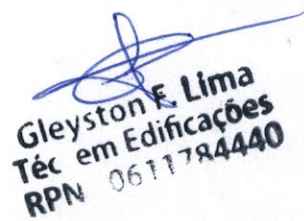 Gleyston F. Lima
Téc em Edificações
RPN 0611784440